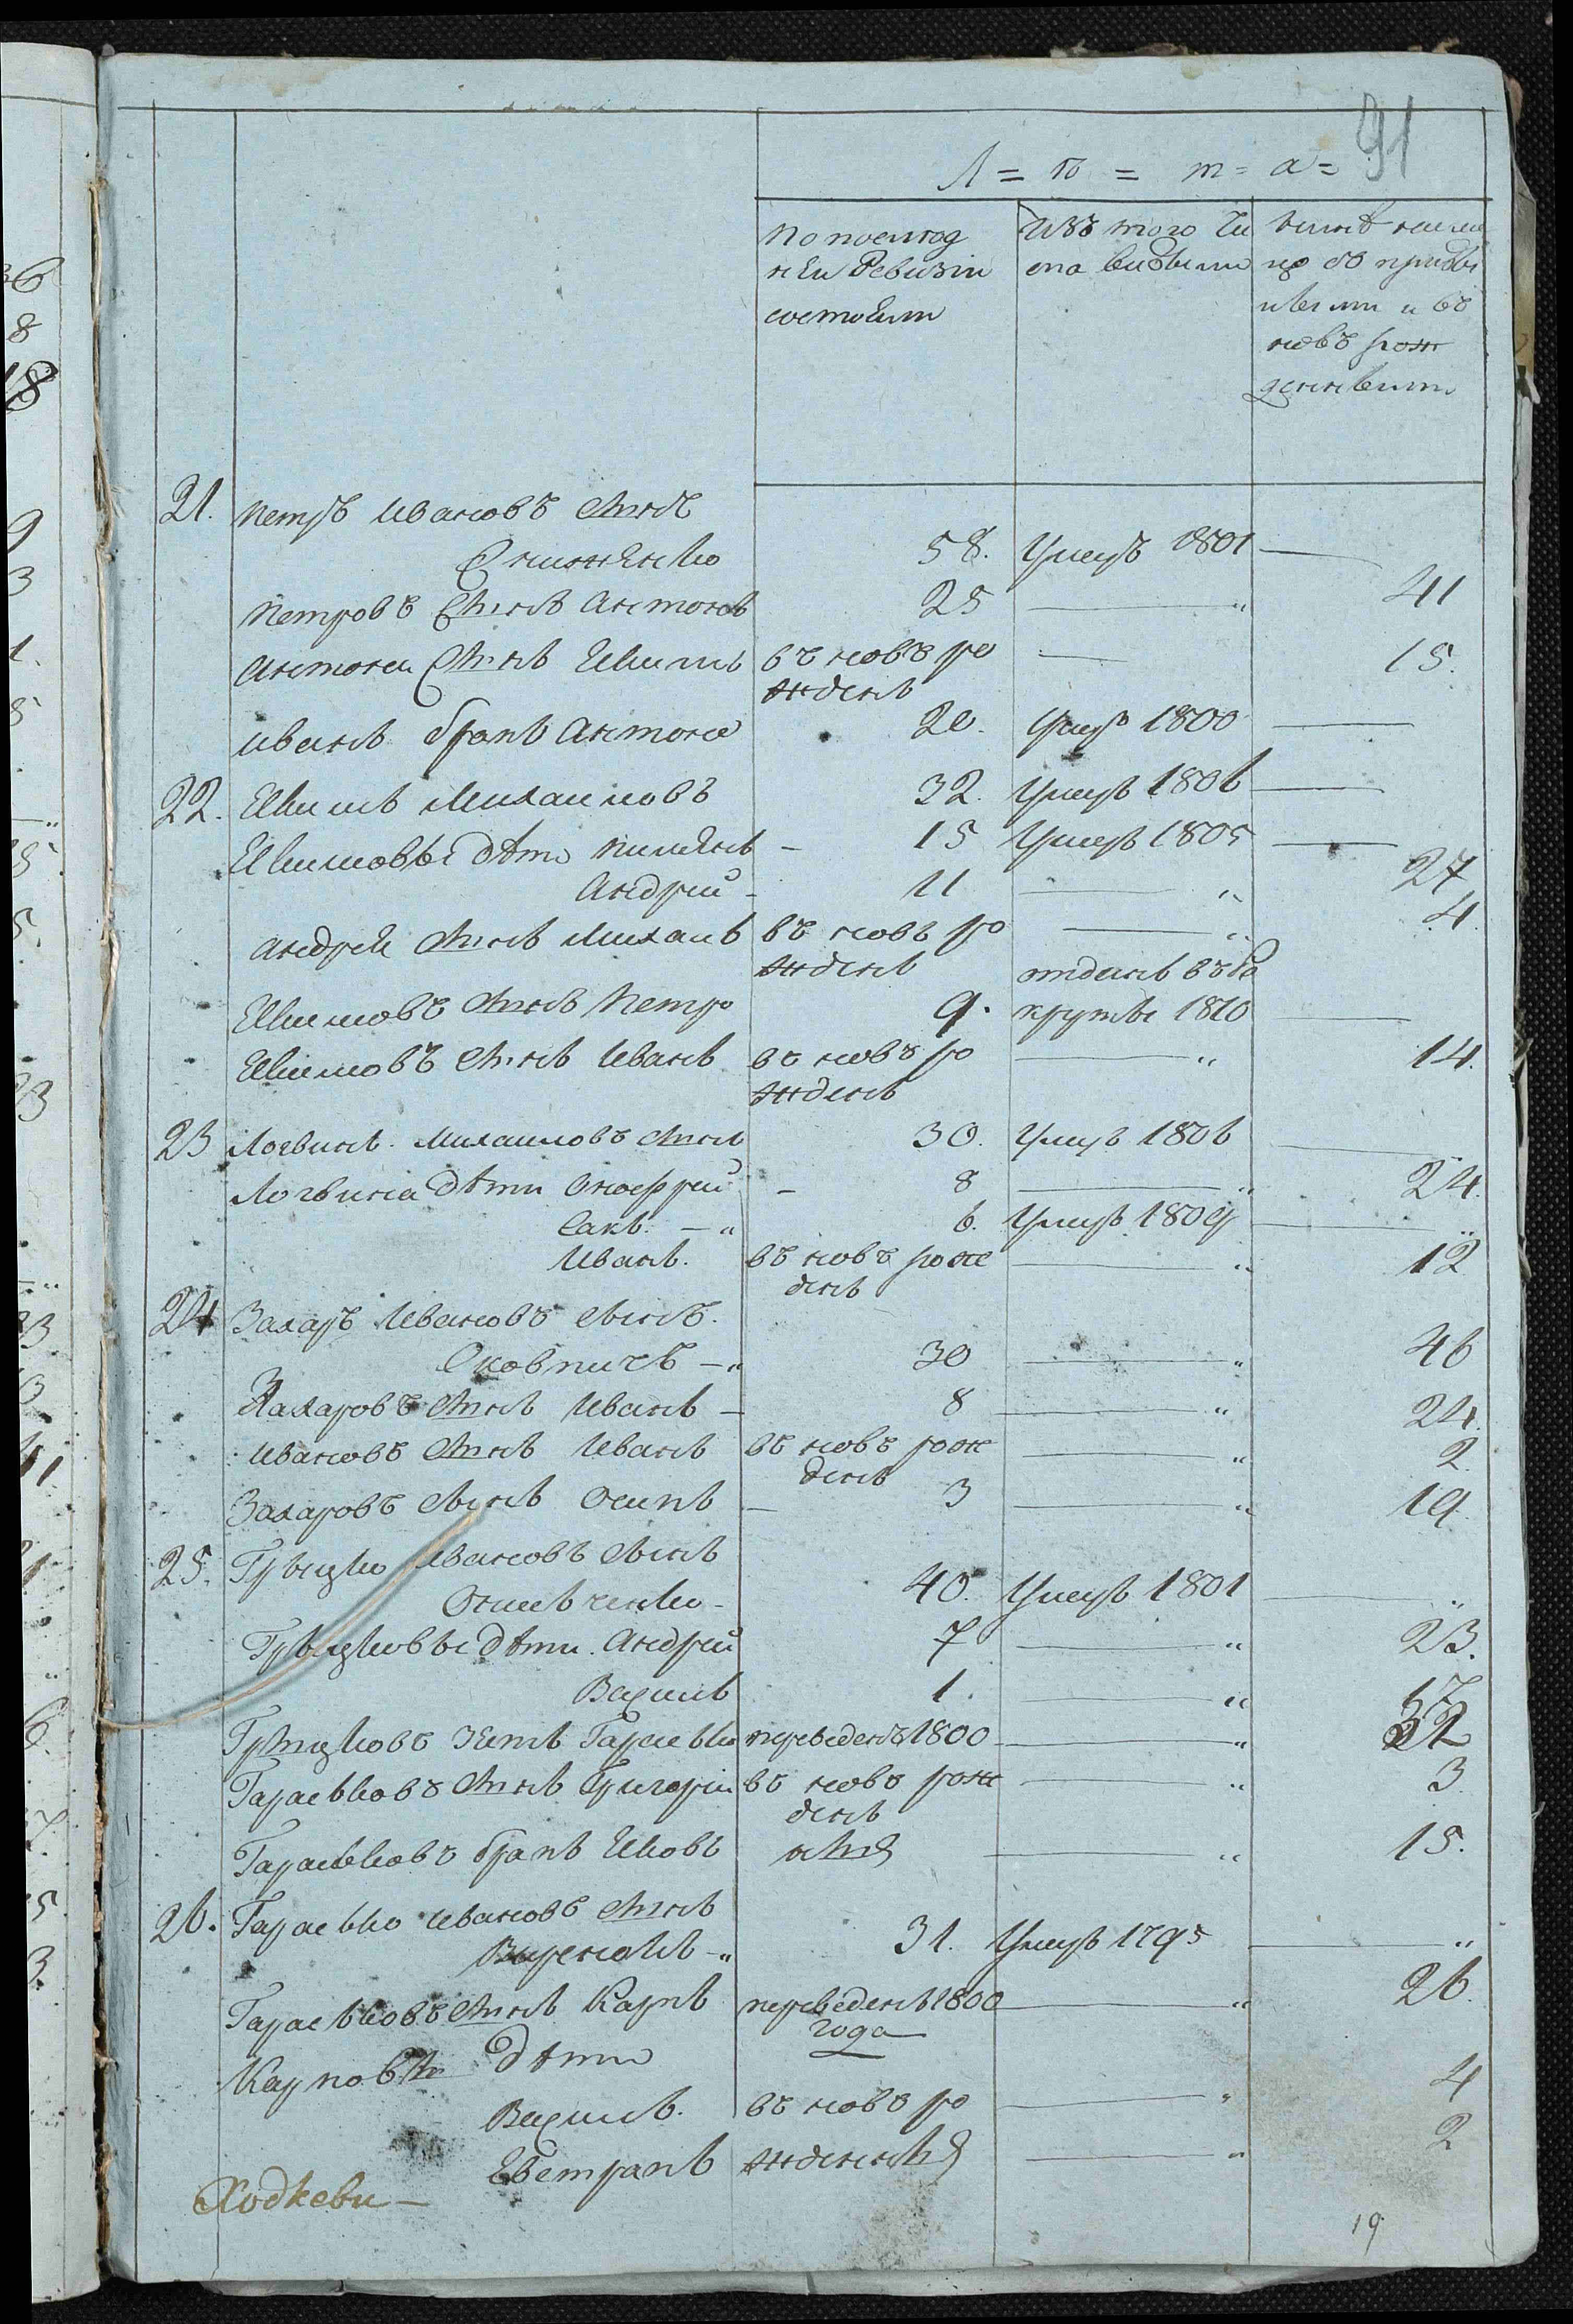 91
Л = ѣ = т = а =
по послѣд
ней Ревизіи
состояли
Изъ того чи
сла выбыли
нынѣ на ли
цо съ прибы
лыми и въ
новъ рож
денными
21. Петръ Ивановъ сынъ
58. Умеръ 1801 —
Петровъ сынъ Антонъ 25 — " 41
Антона сынъ Якимъ въ новъ ро — 15.
жденъ
Иванъ братъ Антона 20. Умеръ 1800 —
22. Якимъ Михайловъ 32. Умеръ 1806 —
Якимовы дѣти Пименъ - 15 Умеръ 1805 —
Андрей - 11 — " 27
Андрея сынъ Михаилъ въ новъ ро — " 4.
жденъ отданъ въ Ре
Якимовъ сынъ Петро 9. круты 1810 —
Якимовъ сынъ Иванъ въ новъ ро — " 14.
жденъ
23 Логвинъ Михайловъ сынъ 30. Умеръ 1806 — "
Логвина дѣти Онофрей - 8 — " 24.
Сакъ. — " 6. Умеръ 1809 — "
Иванъ. въ новъ рож — " 12
денъ
24 Захаръ Ивановъ сынъ.
30 — " 46
Захаровъ сынъ Иванъ — 8 — " 24.
Ивановъ сынъ Иванъ въ новъ рож — " 2
денъ
Захаровъ сынъ Осипъ — 3 — " 19.
25. Грицко Ивановъ сынъ
40. Умеръ 1801 — "
Грицковы дѣти Андрей 7 — " 23.
Василь 1. — " 17
Грицковъ зять Гараско переведенъ 1800 — " 32
Гарасковъ сынъ Григорій въ новъ рож — " 3
денъ
Гарасковъ братъ Яковъ — " 15.
26. Гараско Ивановъ сынъ
31. Умеръ 1795 — "
Гарасковъ сынъ Карпъ переведенъ 1800 — " 26.
года
Карповы дѣти
Василь. въ новъ ро — " 4
Евстратъ жденный — " 2
Ходкеви —
19